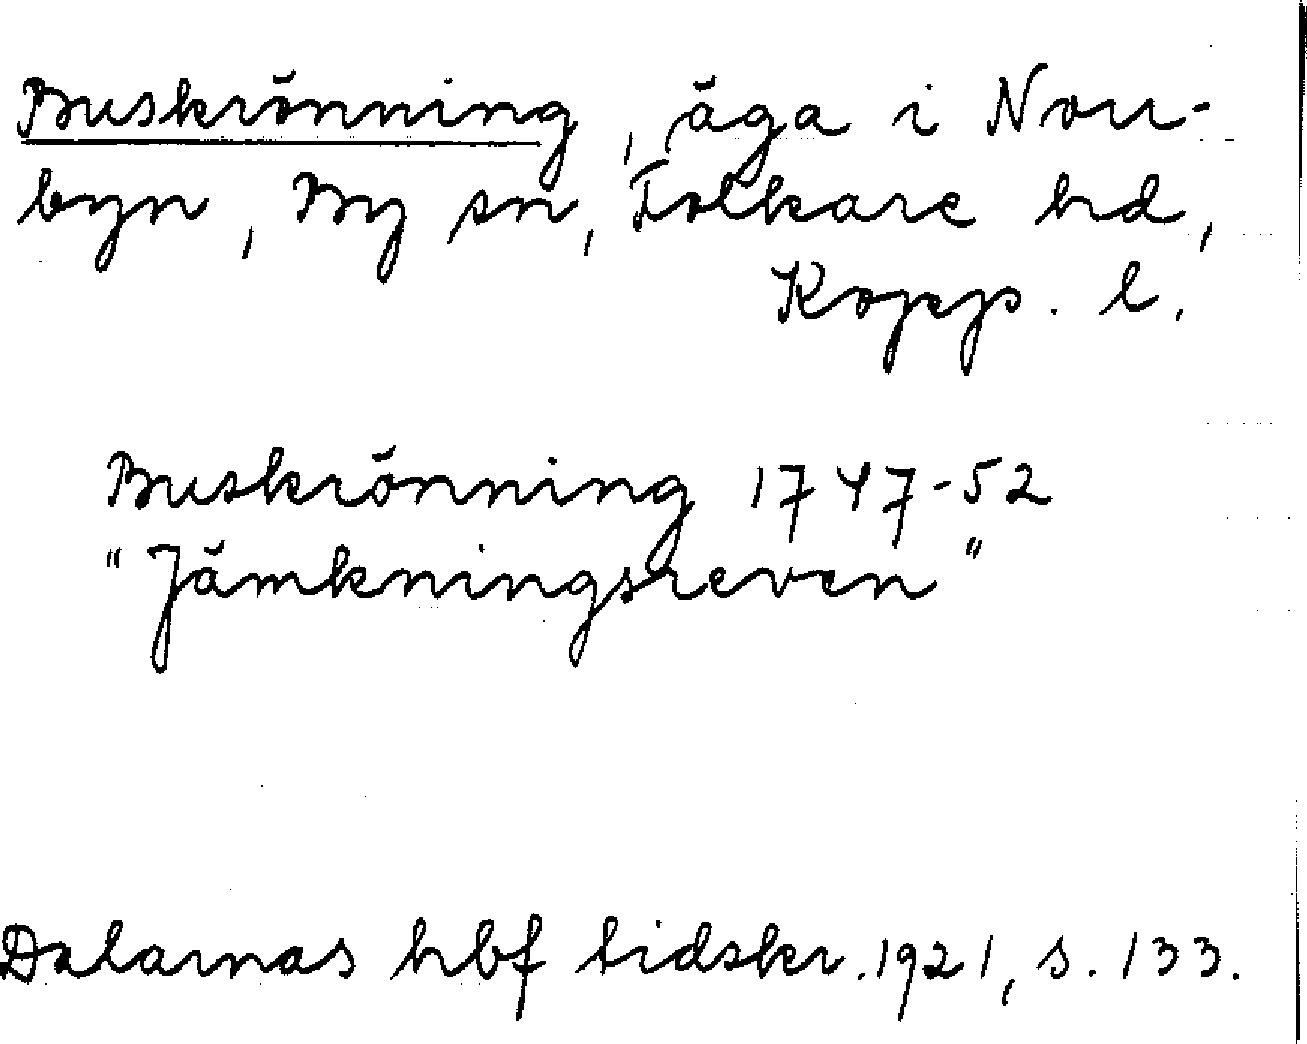 Buskrönning, äga i Norr-
byn, By sn, Folkare hd,
Kopp. l.
Buskrönning 1747-52
"Jämkningsreven"
Dalarnas hbf tidskr. 1921, s. 133.